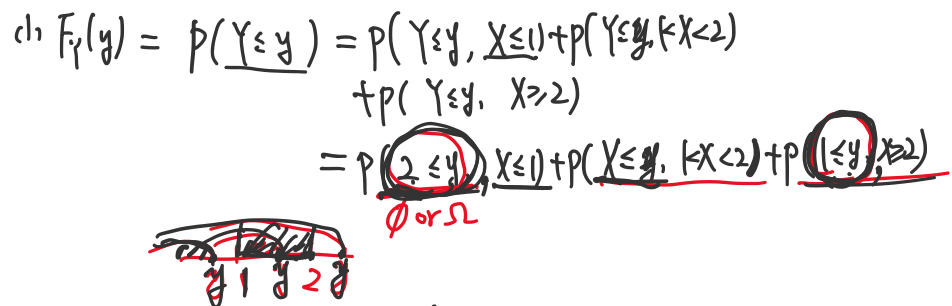 (1) F_Y(y) = P(Y≤y) = P(Y≤y, X≤1)+P(Y≤y, 1<X<2)
+P(Y≤y, X≥2)
= P(2≤y, X≤1)+P(X≤y, 1<X<2)+P(1≤y, X≥2)
∅ or Ω
y 1 y 2 y